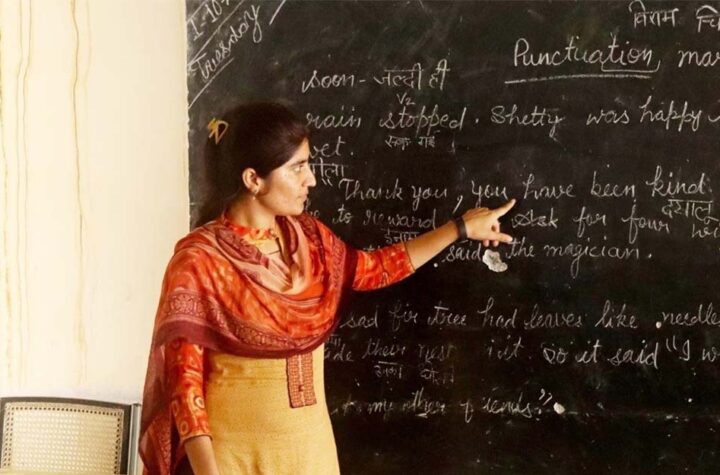 1-10-
Tuesday
विराम चि
Punctuation mar
soon - जल्दी ही
rain stopped. Shetty was happy
रुक गई
wet.
"Thank you, you have been kind
दयालु
to reward ask for four
इनाम
said the magician.
sad fir tree had leaves like needle
their nest it. So it said "I w
to my other friends".